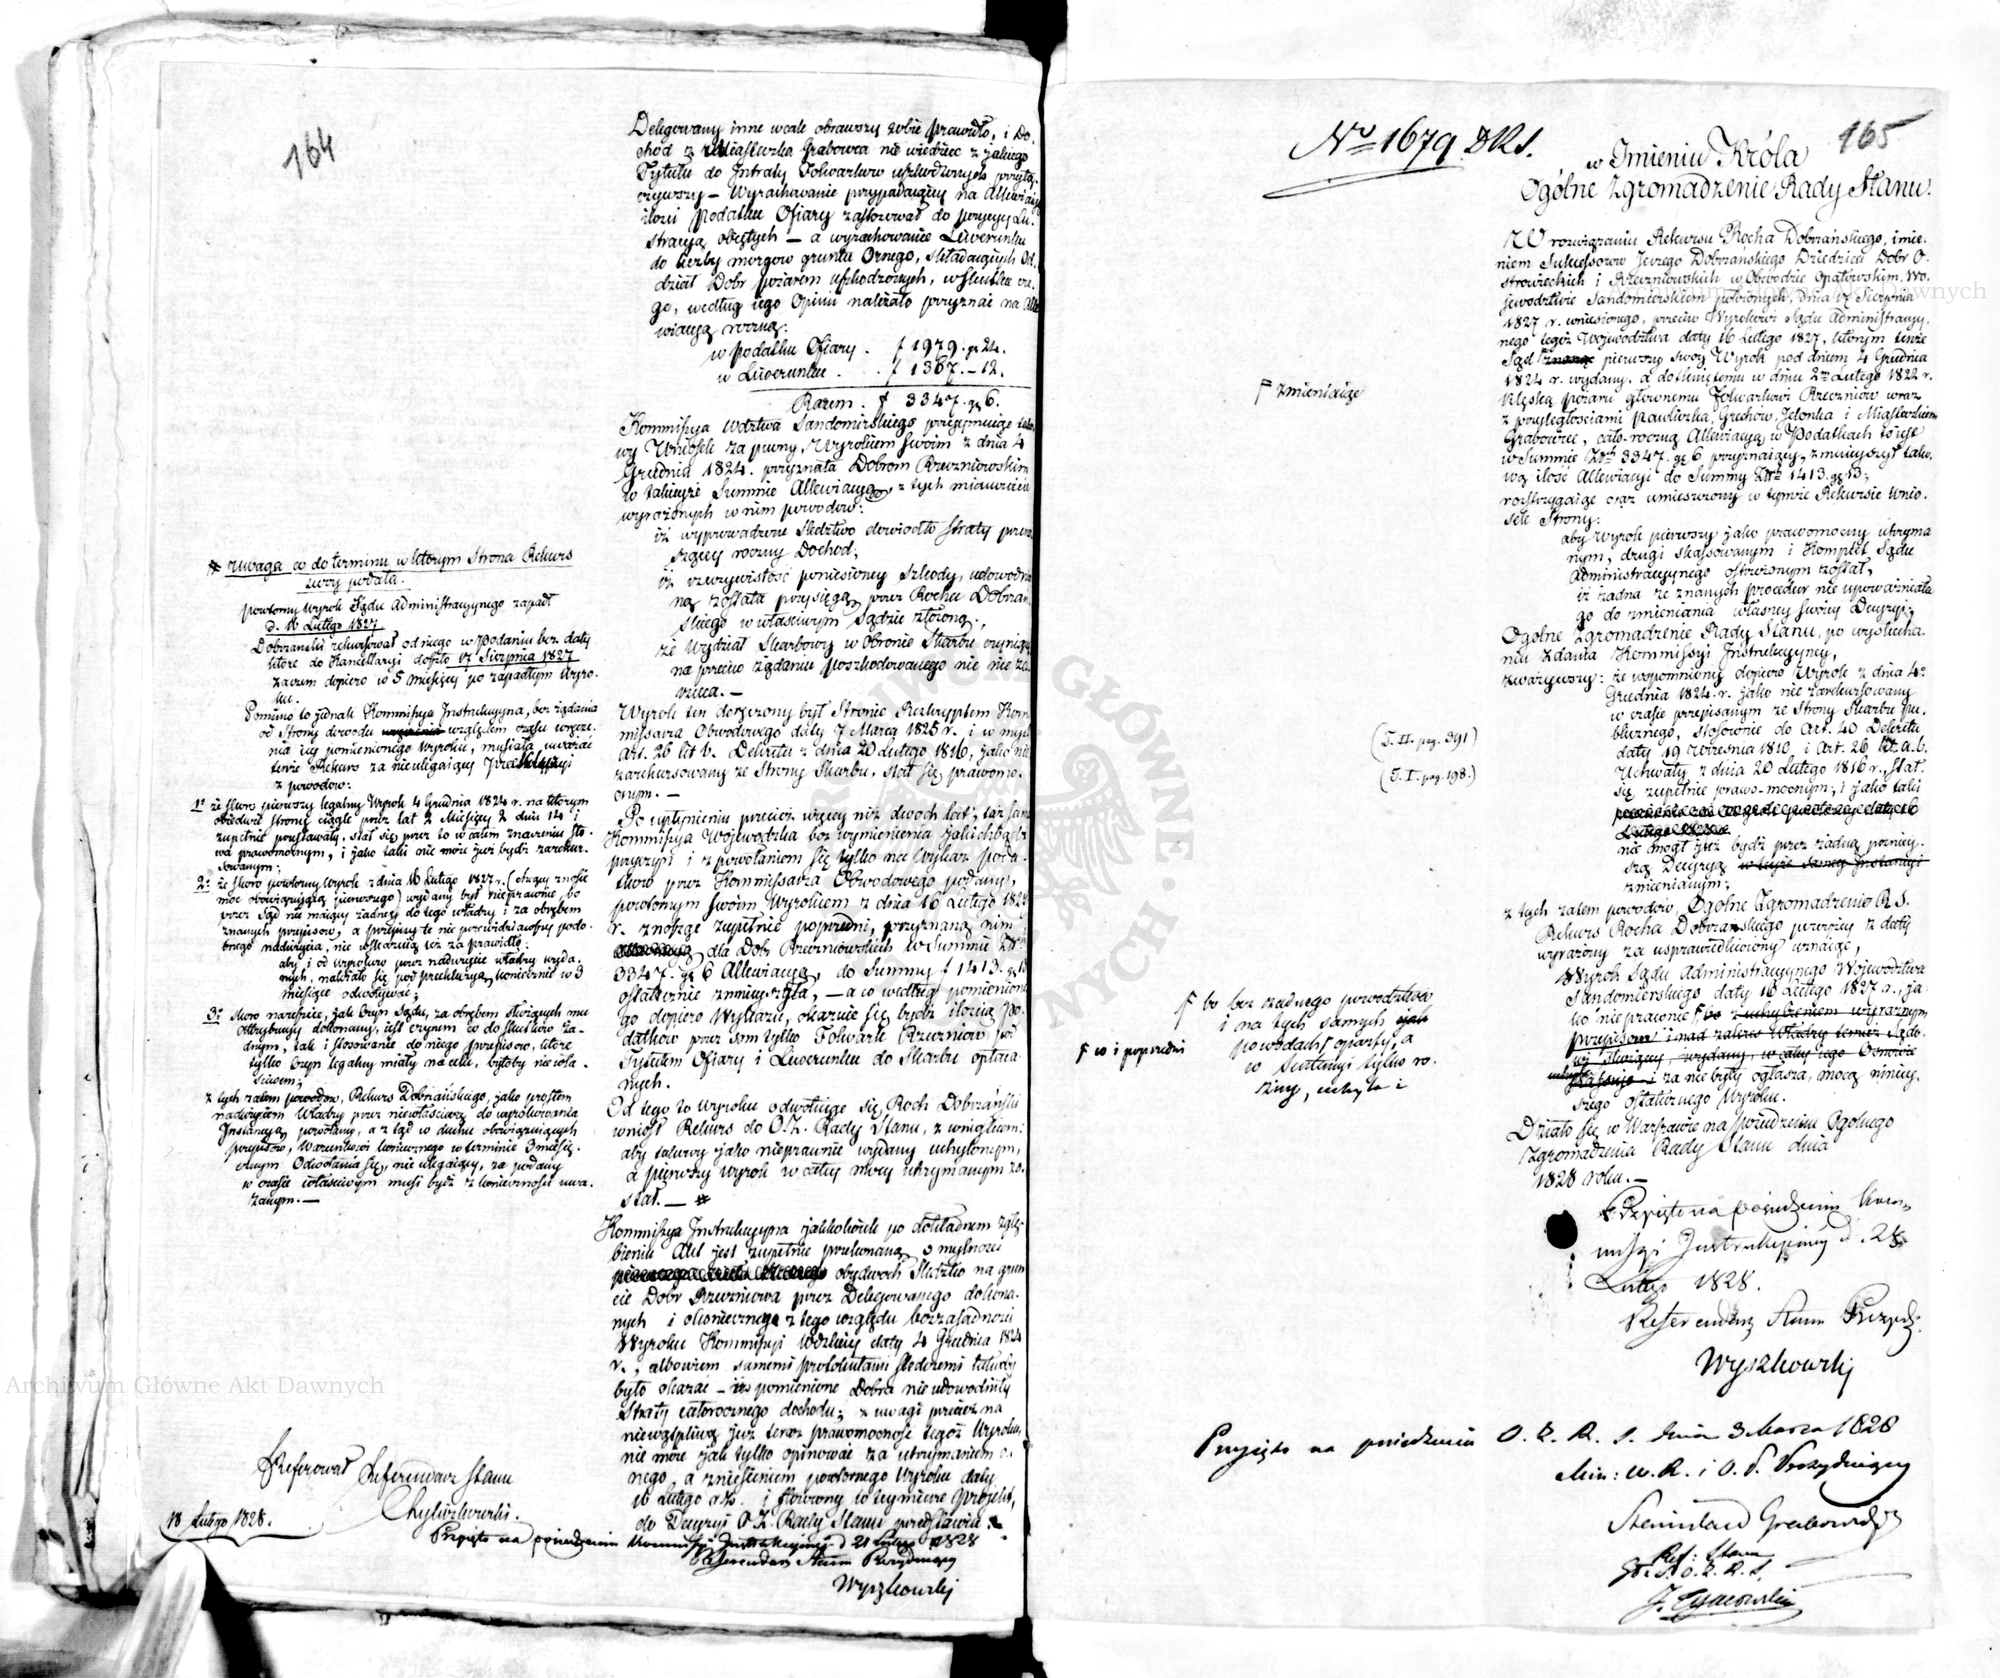 164
Delegowany inne wcale obrawszy sobie prawidło, i Do-
chod z Miasteczka Grabowca nie wiedzieć z jakiego
Tytułu do Intraty Folwarków uszkodzonych przyłą-
czywszy — Wyrachowanie przypadającey na Allewiacyą
ilości Podatku Ofiary zastosował do pozycyy Lu-
stracyą obiętych — a wyrachowanie Liwerunku
do liczby morgow gruntu Ornego, składaiących Od-
dział Dobr pożarem uszkodzonych, w skutku cze-
go, według iego Opinii należało przyznać na Alle-
wiacyą roczną:
w Podatku Ofiary . f 1979. gr 24.
w Liwerunku . . f 1367. — 12.
Razem . f 3347. gr 6.
Kommissya Wdztwa Sandomirskiego przyjmując tako-
wy Wniosek za pewny, Wyrokiem swoim z dnia 4
Grudnia 1824. przyznała Dobrom Rzeczniowskim
w takieyże Summie Allewiacyą, z tych mianowicie
wyrażonych w nim powodow:
iż wyprowadzone Sledztwo dowiodło straty przeno-
szącey roczny Dochod;
iż rzeczywistość poniesioney Szkody, udowodnio-
ną została przysięgą przez Rocha Dobrzań-
skiego w właściwym Sądzie złożoną;
że Wydział Skarbowy w Obronie Skarbu czyniąc
na przeciw żądaniu poszkodowanego nic nie za-
rzuca. —
Wyrok ten doręczony był Stronie Reskryptem Kom-
missarza Obwodowego daty 7 Marca 1825 r. i w myśl
Art. 26 lit b. Dekretu z dnia 20 Lutego 1816, jako nie
zarekursowany ze Strony Skarbu, stał się prawomo-
cnym. —
Po upłynieniu przecież więcey niż dwoch lat, taż sama
Kommissya Wojewodzka bez wymienienia jakichbądź
przyczyn i z powołaniem się tylko na Wykaz poda-
tkow przez Kommissarza Obwodowego podany,
powtornym swoim Wyrokiem z dnia 16 Lutego 1827
r. znosząc zupełnie poprzedni, przyznaną nim
dla Dobr Rzeczniowskich w Summie Złp.
3347. gr 6 Allewiacyą, do Summy f 1413. gr 13
ostatecznie zmnieyszyła, — a co według pomienione-
go dopiero Wykazu, okazuie się bydź ilością Po-
datkow przez sam tylko Folwark Rzeczniow pod
Tytułem Ofiary i Liwerunku do Skarbu opłaca-
nych.
Od tego to Wyroku odwołując się, Roch Dobrzański
wniosł Rekurs do O. Z. Rady Stanu, z wnioskiem:
aby takowy jako nieprawnie wydany uchylonym,
a pierwszy Wyrok w całey mocy utrzymanym zo-
stał. — #
Kommissya Instrukcyyna jakkolwiek po dokładnem zgłę-
bieniu Akt jest zupełnie przekonaną o mylności
obydwoch Sledztw na grun-
cie Dobr Rzeczniowa przez Delegowanego dokona-
nych i o koniecznej z tego względu bezzasadności
Wyroku Kommissyi Wdzkiey daty 4 Grudnia 1824
r., albowiem samemi protokułami śledczemi łatwoby
było okazać — iż pomienione Dobra nie udowodniły
Straty całorocznego dochodu; z uwagi przecież na
niewątpliwą już teraz prawomocność tegoż Wyroku,
nie może jak tylko opinować za utrzymaniem o-
nego, a zniesieniem powtornego Wyroku daty
16 Lutego r. b. i stosowny w tey mierze Projekt,
do Decyzyi O. Z. Rady Stanu przedstawia.
# Uwaga co do terminu w którym Strona Rekurs
swoy podała.
powtorny Wyrok Sądu Administracyynego zapadł
d. 16 Lutego 1827
Dobrzański rekursował od niego w Podaniu bez daty
które do Kancellaryi doszło 17 Sierpnia 1827
zatem dopiero w 5 Miesięcy po zapadłym Wyro-
ku.
Pomimo to jednak Kommissya Instrukcyyna, bez żądania
od Strony dowodu względem czasu wręcze-
nia iey pomienionego Wyroku, musiała uważać
tenże Rekurs za nieulegaiący Prekluzyi
z powodow:
1º że skoro pierwszy legalny Wyrok 4 Grudnia 1824 r. na którym
obiedwie Strony ciągle przez lat 2 Miesięcy 2 dni 14
zupełnie przestawały, stał się przez to w całem znaczeniu sło-
wa prawomocnym, i jako taki nie może już bydź zarekur-
sowanym;
2º że skoro powtorny Wyrok z dnia 16 Lutego 1827 r. (chcący znosić
moc obowiązującą pierwszego) wydany był nieprawnie, bo
przez Sąd nie maiący żadney do tego władzy i za obrębem
znanych przepisow, a przepisy te nie przewidziawszy podo-
bnego nadużycia, nie wskazuią też za prawidło:
aby i od Wyrokow przez nadużycie władzy wyda-
nych, należało się pod prekluzyą koniecznie w 3
miesiące odwoływać;
3º skoro nareszcie, jak Czyn Sądu, za obrębem służących mu
Attrybucyy dokonany, jest czynem co do skutkow ża-
dnym, tak i stosowanie do niego przepisow, które
tylko Czyn legalny miały na celu, byłoby niewła-
ściwem;
z tych zatem powodow, Rekurs Dobrzańskiego, jako prostem
nadużyciem Władzy przez niewłaściwą do wyrokowania
Instancyą powołany, a z tąd w duchu obowiązuiących
przepisow, Warunkowi koniecznego w terminie 3 miesię-
cznym Odwołania się, nie ulegaiący, za podany
w czasie właściwym musi bydź z konieczności uwa-
żanym. —
Referował Referendarz Stanu
Chyliczkowski.
18 Lutego 1828.
Przyięto na posiedzeniu Kommissyi Instrukcyjnej d 21 Lutego 1828
Referendarz Stanu Prezydujący
Wyszkowski
165
Nro 1679. DRS.
w Imieniu Króla
Ogólne Zgromadzenie Rady Stanu.
W rozwiązaniu Rekursu Rocha Dobrzańskiego, imie-
niem Sukcessorow Jerzego Dobrzańskiego Dziedzica Dobr O-
strowieckich i Rzeczniowskich w Obwodzie Opatowskim, Wo-
jewodztwie Sandomierskiem położonych, dnia 17 Sierpnia
1827 r. wniesionego, przeciw Wyrokowi Sądu Administracyy-
nego tegoż Wojewodztwa daty 16 Lutego 1827, którym tenże
Sąd pierwszy swoy Wyrok pod dniem 4 Grudnia
1824 r. wydany, a dotkniętemu w dniu 2m Lutego 1822 r.
klęską pożaru głownemu Folwarkowi Rzeczniow wraz
z przyległościami Pawliczka, Grechow, Jelonka i Miasteczkiem
Grabowiec, cało-roczną Allewiacyą w Podatkach to iest
w Summie Złp. 3347. gr 6 przyznaiący, zmnieyszył tako-
wą ilość Allewiacyi do Summy Złp. 1413. gr 13;
rozstrzygaiąc oraz umieszczony w tymże Rekursie Wnio-
sek Strony:
aby Wyrok pierwszy jako prawomocny utrzyma-
nym, drugi skassowanym i Komplet Sądu
Administracyynego ostrzeżonym został,
iż żadna ze znanych procedur nie upoważniała
go do zmieniania własney swoiey Decyzyi;
Ogólne Zgromadzenie Rady Stanu, po wysłucha-
niu Zdania Kommissyi Instrukcyyney,
zważywszy: że wspomniony dopiero Wyrok z dnia 4º
Grudnia 1824 r. jako nie zarekursowany
w czasie przepisanym ze Strony Skarbu pu-
blicznego, stosownie do Art. 40 Dekretu
daty 19 Września 1810, i Art. 26 lit. a. b.
Uchwały z dnia 20 Lutego 1816 r., stał
się zupełnie prawo-mocnym, i jako taki
nie mógł już bydź przez żadną poźniey-
szą Decyzyą w teyże samey Instancyi
zmienianym;
z tych zatem powodow, Ogólne Zgromadzenie R. S.
Rekurs Rocha Dobrzańskiego powyżey z daty
wyrażony za usprawiedliwiony uznaiąc,
Wyrok Sądu Administracyynego Wojewodztwa
Sandomierskiego daty 16 Lutego 1827 r., ja-
ko nieprawnie bo z uchybieniem wyraznym
przepisom i nad zakres Władzy temuż Sądo-
wi służącey, wydany, w całey iego Osnowie
i za niebyły ogłasza, mocą niniey-
szego ostatecznego Wyroku.
Działo się w Warszawie na posiedzeniu Ogólnego
Zgromadzenia Rady Stanu dnia
1828 roku. —
ꟻ zmieniając
(T. II. pag. 391)
(T. I. pag. 198.)
ꟻ bo bez żadnego powodztwa
i na tych samych
powodach ꟻ oparty, a
w Sentencyi tylko ró-
żny, uchyla i
ꟻ co i poprzedni
Przyięto na posiedzeniu Kom-
missyi Instrukcyjnej d. 28
Lutego 1828.
Referendarz Stanu Prezyd:
Wyszkowski
Przyięto na posiedzeniu O. Z. R. S. dnia 3 Marca 1828
Min: W. R. i O. P. Prezydujący
Stanisław Grabowski
Ref: Stanu
O. Z. R. S.
Archiwum Główne Akt Dawnych
Archiwum Główne Akt Dawnych
ARCHIWUM GŁÓWNE AKT DAWNYCH